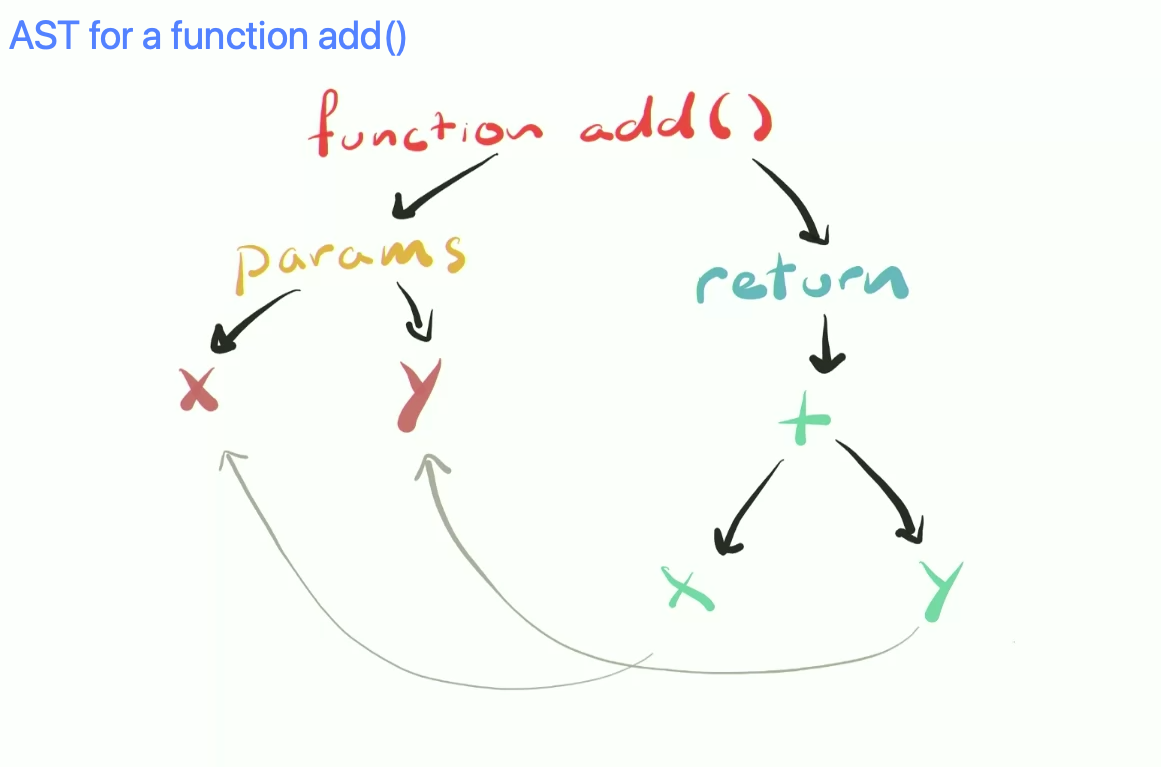 AST for a function add()
function add()
params
return
x y
+
x y